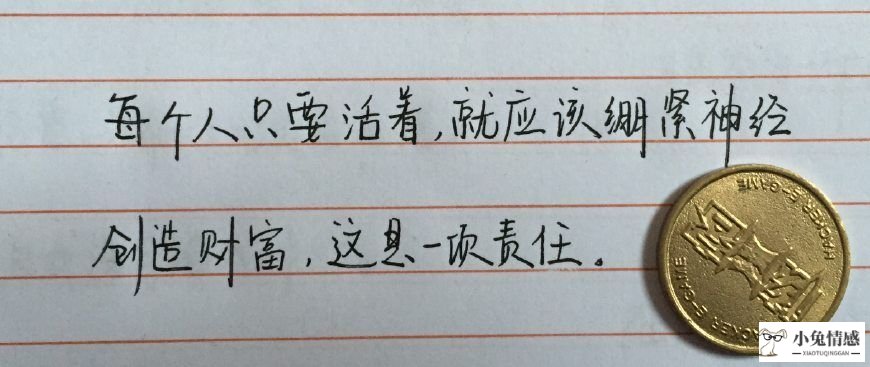 每个人只要活着,就应该绷紧神经
创造财富,这是一项责任。
E-GAME
HACKER E-GAME
HACKER E-GAME
小兔情感
XIAOTUQINGGAN